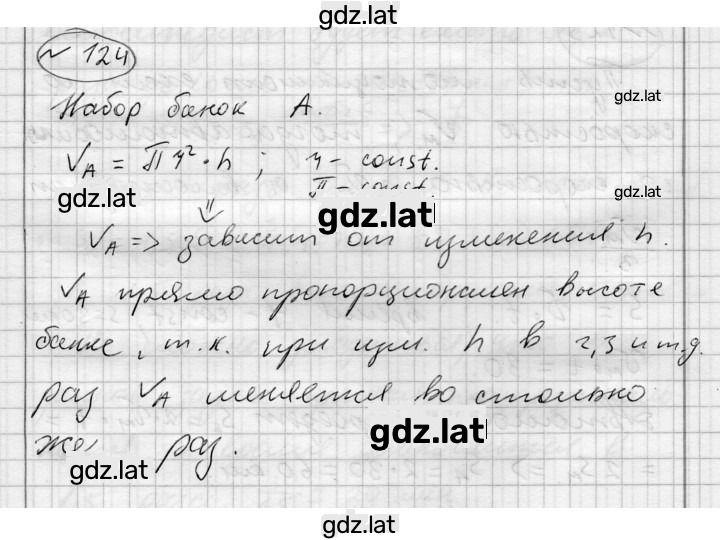 gdz.lat
№ 124
gdz.lat
Набор банок А.
V_A = πr²·h ; r – const.
π – const.
gdz.lat
gdz.lat
gdz.lat
V_A => зависит от изменения h.
V_A прямо пропорционален высоте
банке, т.к. при изм. h в 2,3 и т.д.
раз V_A меняется во столько
же раз.
gdz.lat
gdz.lat
gdz.lat